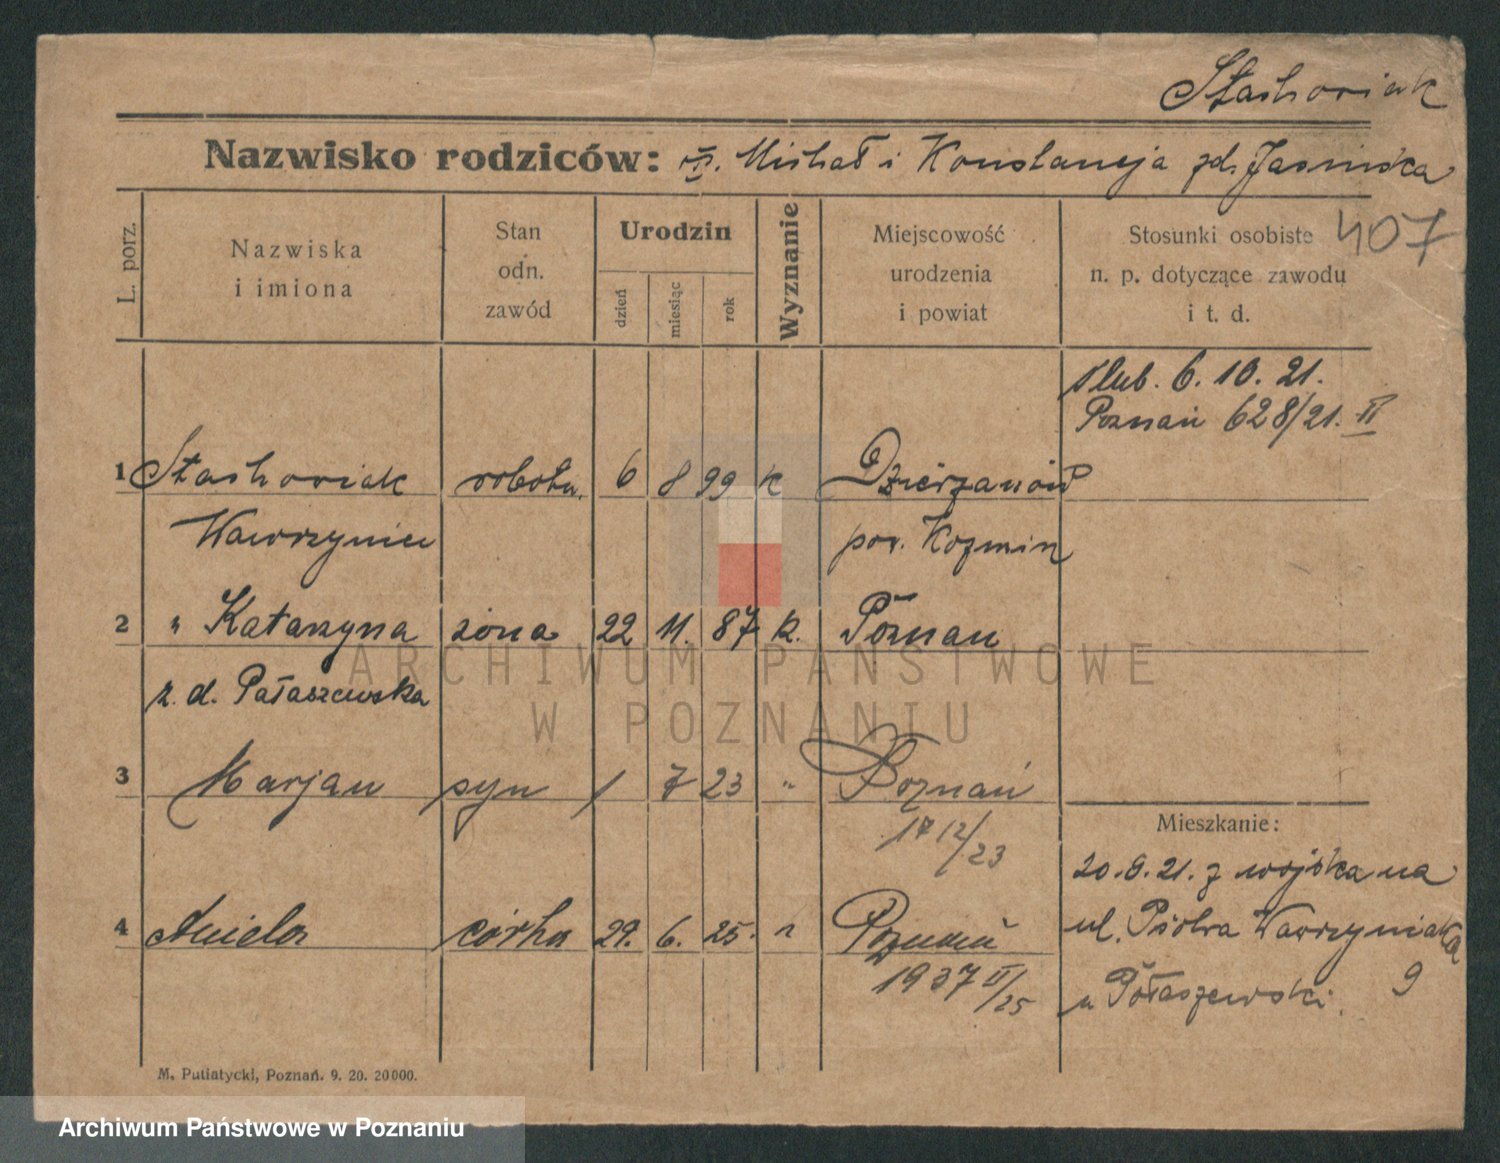 Stachowiak
Nazwisko rodziców: Michał i Konstancja zd. Jasińska
407
L. porz.
Nazwiska
i imiona
Stan
odn.
zawód
Urodzin
dzień
miesiąc
rok
Wyznanie
Miejscowość
urodzenia
i powiat
Stosunki osobiste
n. p. dotyczące zawodu
i t. d.
ślub. 6. 10. 21.
Poznań 628/21. II
1 Stachowiak robotn. 6 8 99 K Dzierżanów
Wawrzyniec pow. Kozmin
2 " Katarzyna żona 22 11. 87 K. Poznań
z. d. Pałaszewska
3 Marjan syn 1 7 23 " Poznań
1712/23
Mieszkanie:
20.9.21. z wojska na
4 Aniela córka 29. 6. 25. " Poznań
ul. Piotra Wawrzyniaka
9
1937 II/25
u Pałaszewski.
M. Putiatycki, Poznań. 9. 20. 20000.
ARCHIWUM PAŃSTWOWE
W POZNANIU
Archiwum Państwowe w Poznaniu